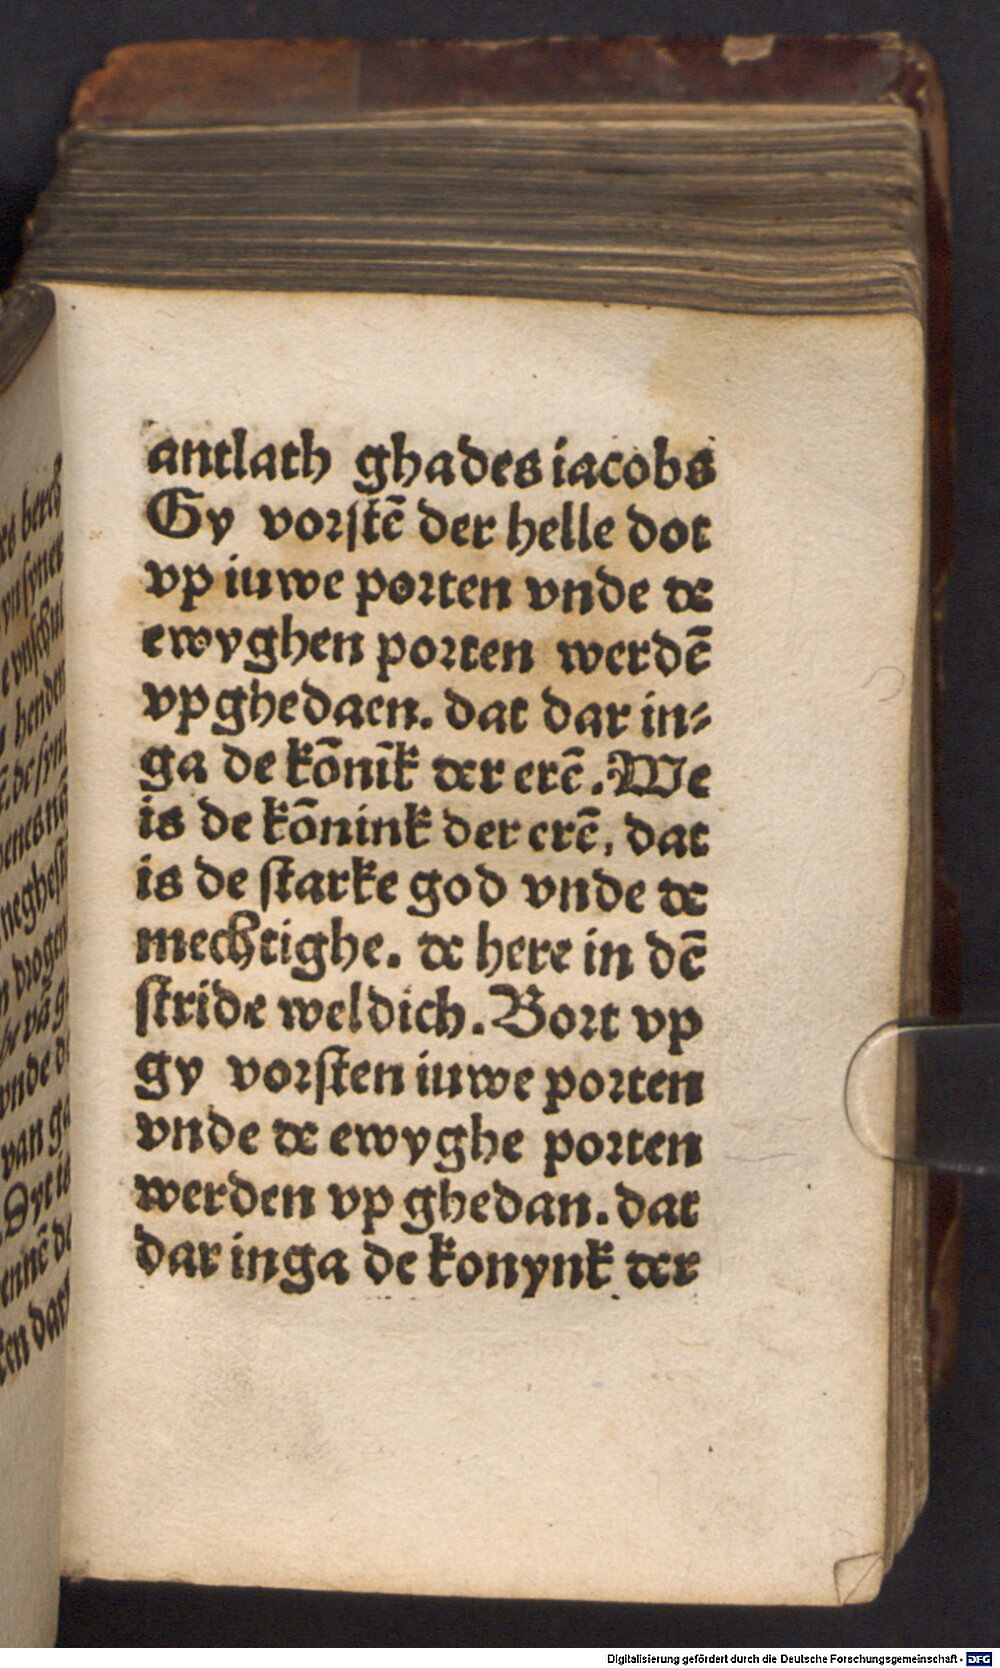 antlath ghades iacobs
Gy vorstē der helle dot
vp iuwe porten vnde de
ewyghen porten werdē
vpghedaen. dat dar in⸗
ga de kōnīk der erē. We
is de kōnink der erē, dat
is de starke god vnde de
mechtighe. de here in dē
stride weldich. Bort vp
gy vorsten iuwe porten
vnde de ewyghe porten
werden vp ghedan. dat
dar inga de konynk der
Digitalisierung gefördert durch die Deutsche Forschungsgemeinschaft - DFG